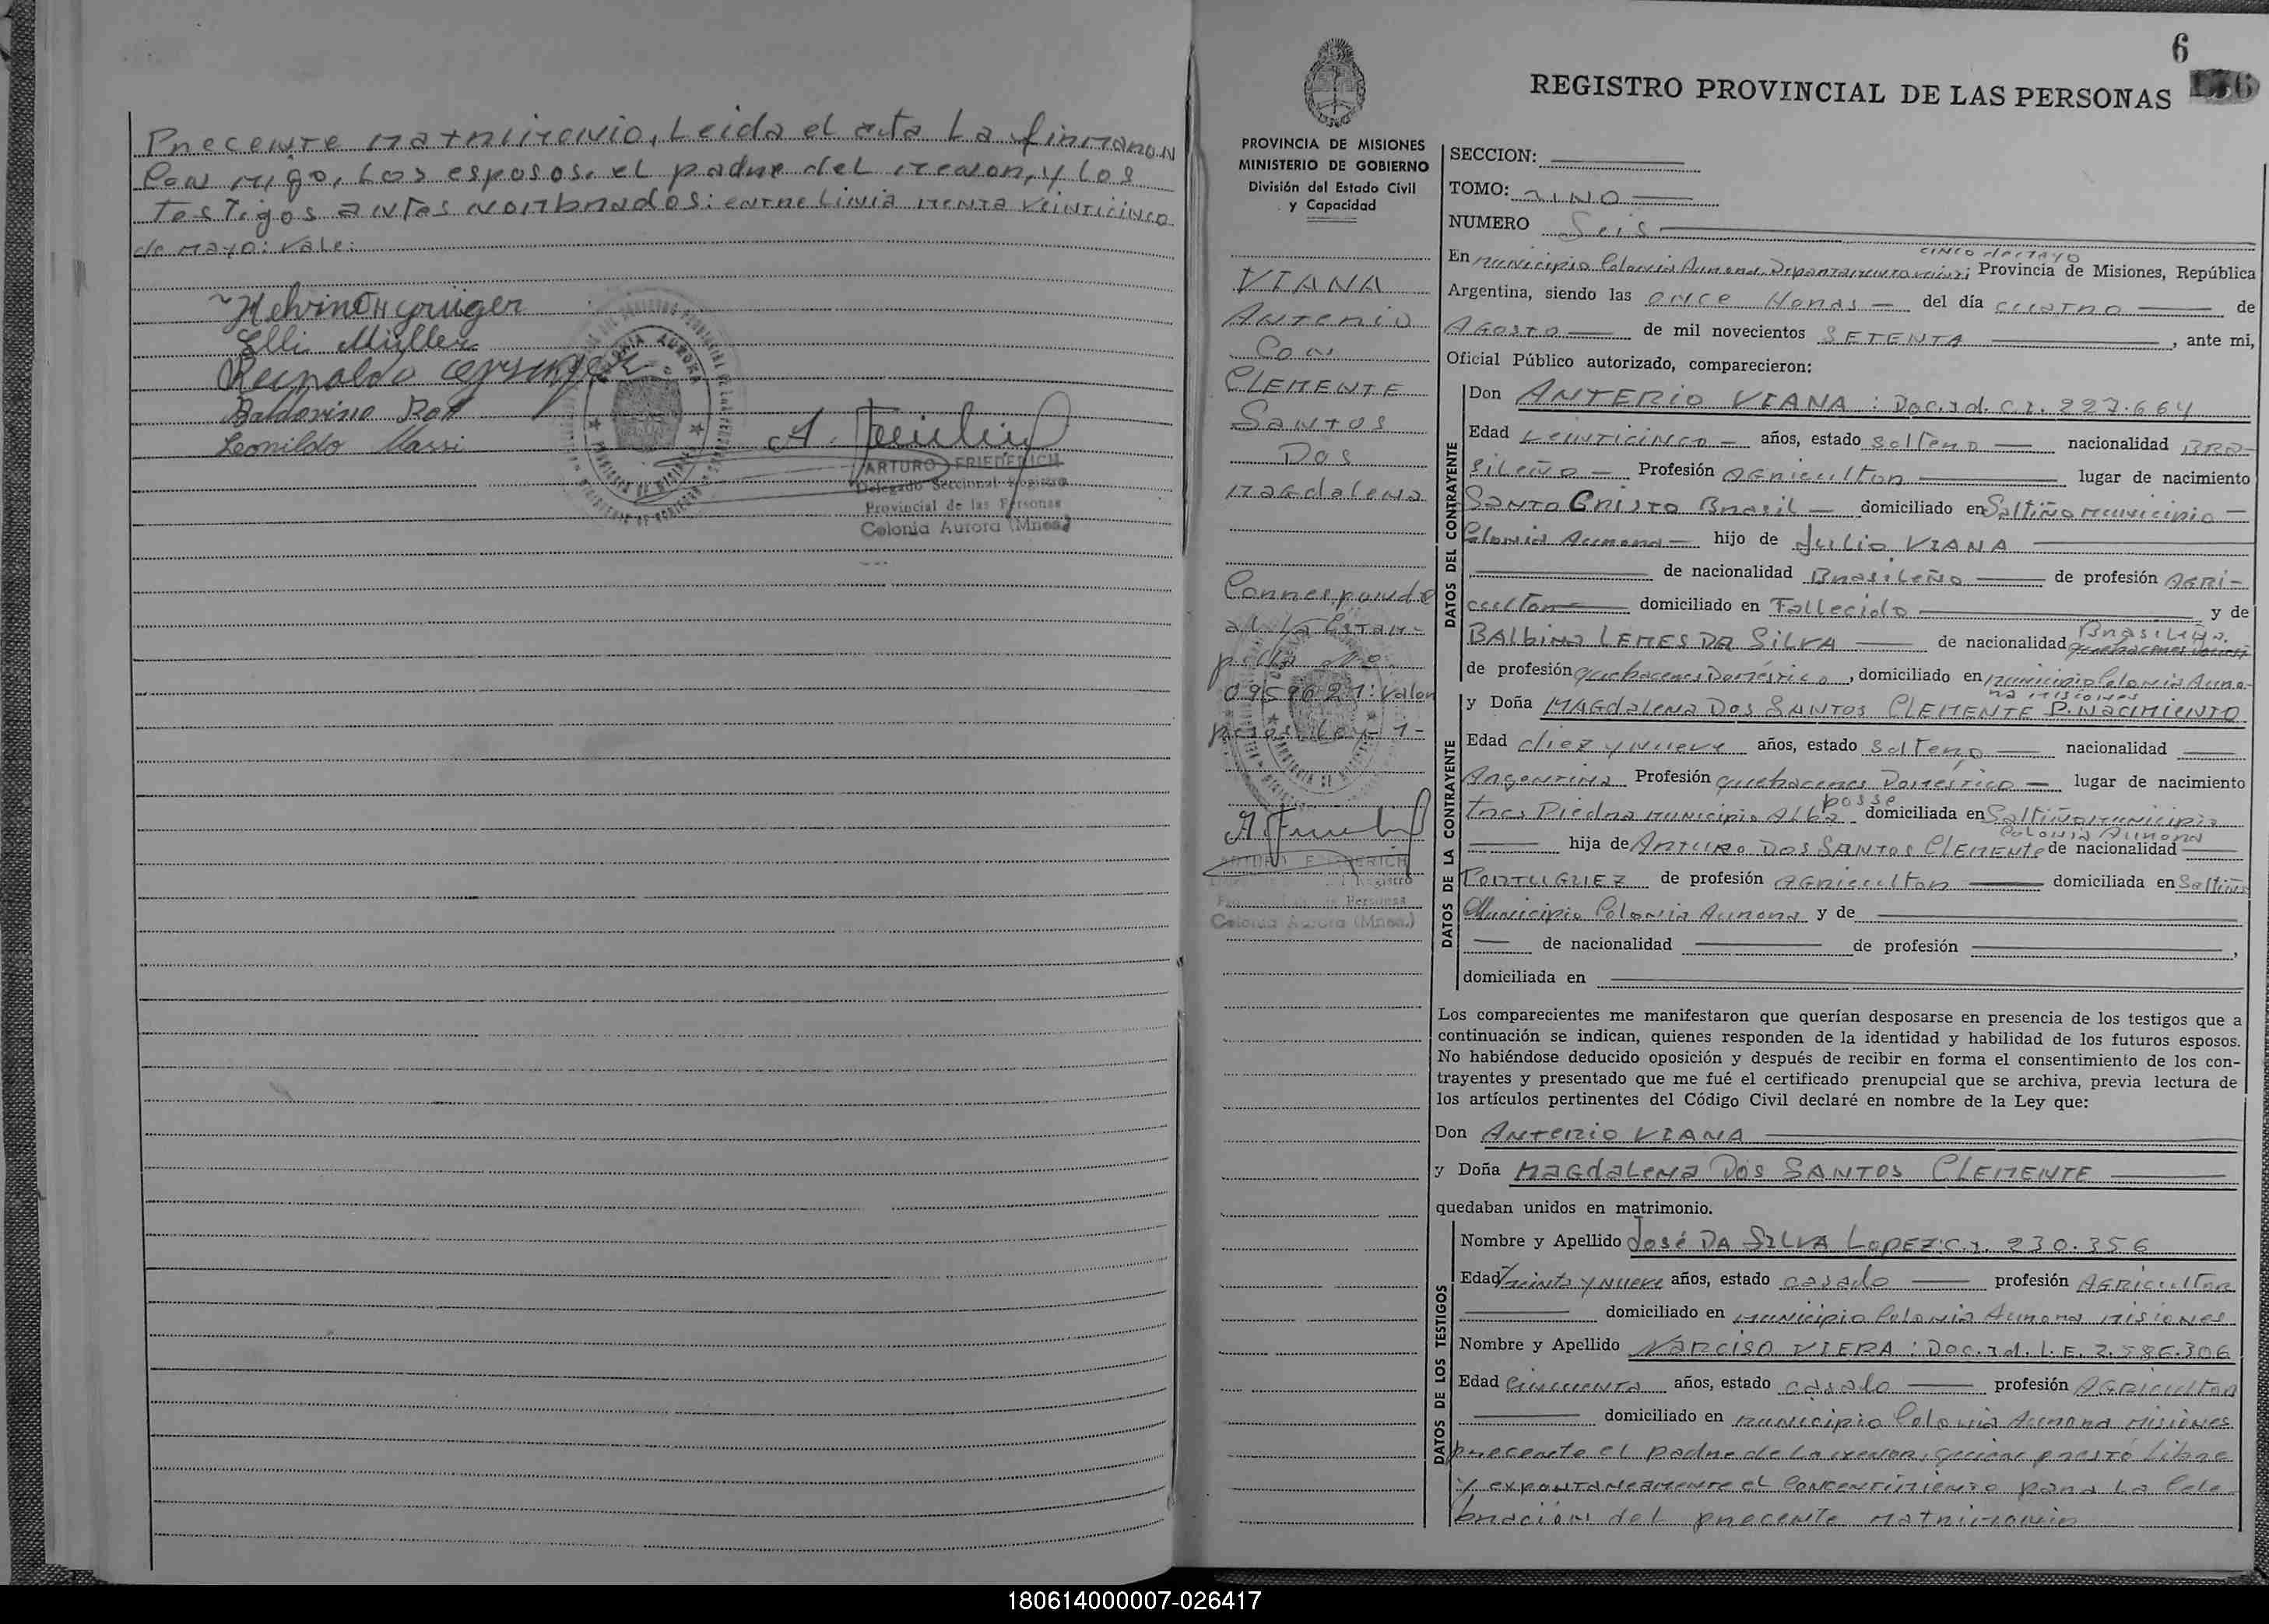 Precente matrimonio, Leida el acta La firmaron
Con migo, Los esposos, el padre del menor, y los
Testigos antes nombrados: entre Linia menta veinticinco
de mayo: vale:
Helvino Krüger
Elli Müller
Reinaldo
Baldovino Bott
Leonildo Massi
A. Friederich
ARTURO FRIEDERICH
Delegado Seccional Registro
Provincial de las Personas
Colonia Aurora (Mnes.)
6
REGISTRO PROVINCIAL DE LAS PERSONAS
PROVINCIA DE MISIONES
MINISTERIO DE GOBIERNO
División del Estado Civil
y Capacidad
VIANA
Anterio
Con
CLEMENTE
Santos
Dos
Magdalena
Corresponde
a la Estam-
pilla No
0959621: valor
pesos Ley 1-
ARTURO FRIEDERICH
Registro
Personas
Colonia Aurora (Mnes.)
SECCION:
TOMO: UNO
NUMERO Seis
CINCO de MAYO
En municipio Colonia Aurora, Departamento veinti; Provincia de Misiones, República
Argentina, siendo las once Horas del día cuatro de
Agosto de mil novecientos SETENTA, ante mi,
Oficial Público autorizado, comparecieron:
DATOS DEL CONTRAYENTE
Don ANTERIO VIANA: Doc. id. C.I. 227.664
Edad veinticinco años, estado soltero nacionalidad BRA-
sileño Profesión Agricultor lugar de nacimiento
Santo Cristo Brasil domiciliado en Saltiño municipio
Colonia Aurora hijo de Julio VIANA
de nacionalidad Brasileño de profesión AGRI-
cultor domiciliado en Fallecido y de
BALbina LEMES DA SILVA de nacionalidad Brasileña
de profesión quehaceres Doméstico, domiciliado en municipio Colonia Auro-
ra misiones
y Doña MAGdaLena Dos SANTOS CLEMENTE P. NACIMIENTO
DATOS DE LA CONTRAYENTE
Edad diez y nueve años, estado soltera nacionalidad
Argentina Profesión quehaceres Domestico lugar de nacimiento
tres Piedra municipio Alba posse domiciliada en Saltiño municipio
Colonia Aurora
hija de ARTURO DOS SANTOS CLEMENTE de nacionalidad
PORTUGUEZ de profesión AGricultor domiciliada en Saltiño
Municipio Colonia Aurora y de
de nacionalidad de profesión ,
domiciliada en
Los comparecientes me manifestaron que querían desposarse en presencia de los testigos que a
continuación se indican, quienes responden de la identidad y habilidad de los futuros esposos.
No habiéndose deducido oposición y después de recibir en forma el consentimiento de los con-
trayentes y presentado que me fué el certificado prenupcial que se archiva, previa lectura de
los artículos pertinentes del Código Civil declaré en nombre de la Ley que:
Don Anterio VIANA
y Doña MaGdaLena Dos SANTOS CLEMENTE
quedaban unidos en matrimonio.
DATOS DE LOS TESTIGOS
Nombre y Apellido José DA SILVA LopEZ: C.I. 230.356
Edad Treinta y Nueve años, estado casado profesión AGRIcultor
domiciliado en municipio Colonia Aurora misiones
Nombre y Apellido NARCISO VIERA: Doc. id. L.E. 2.586.306
Edad Cincuenta años, estado casado profesión AGRICultor
domiciliado en municipio Colonia Aurora Misiones
precente el padre de La menor, quien prestó Libre
y expontaneamente el Concentimiento para La Cele
bración del precente matrimonio
180614000007-026417